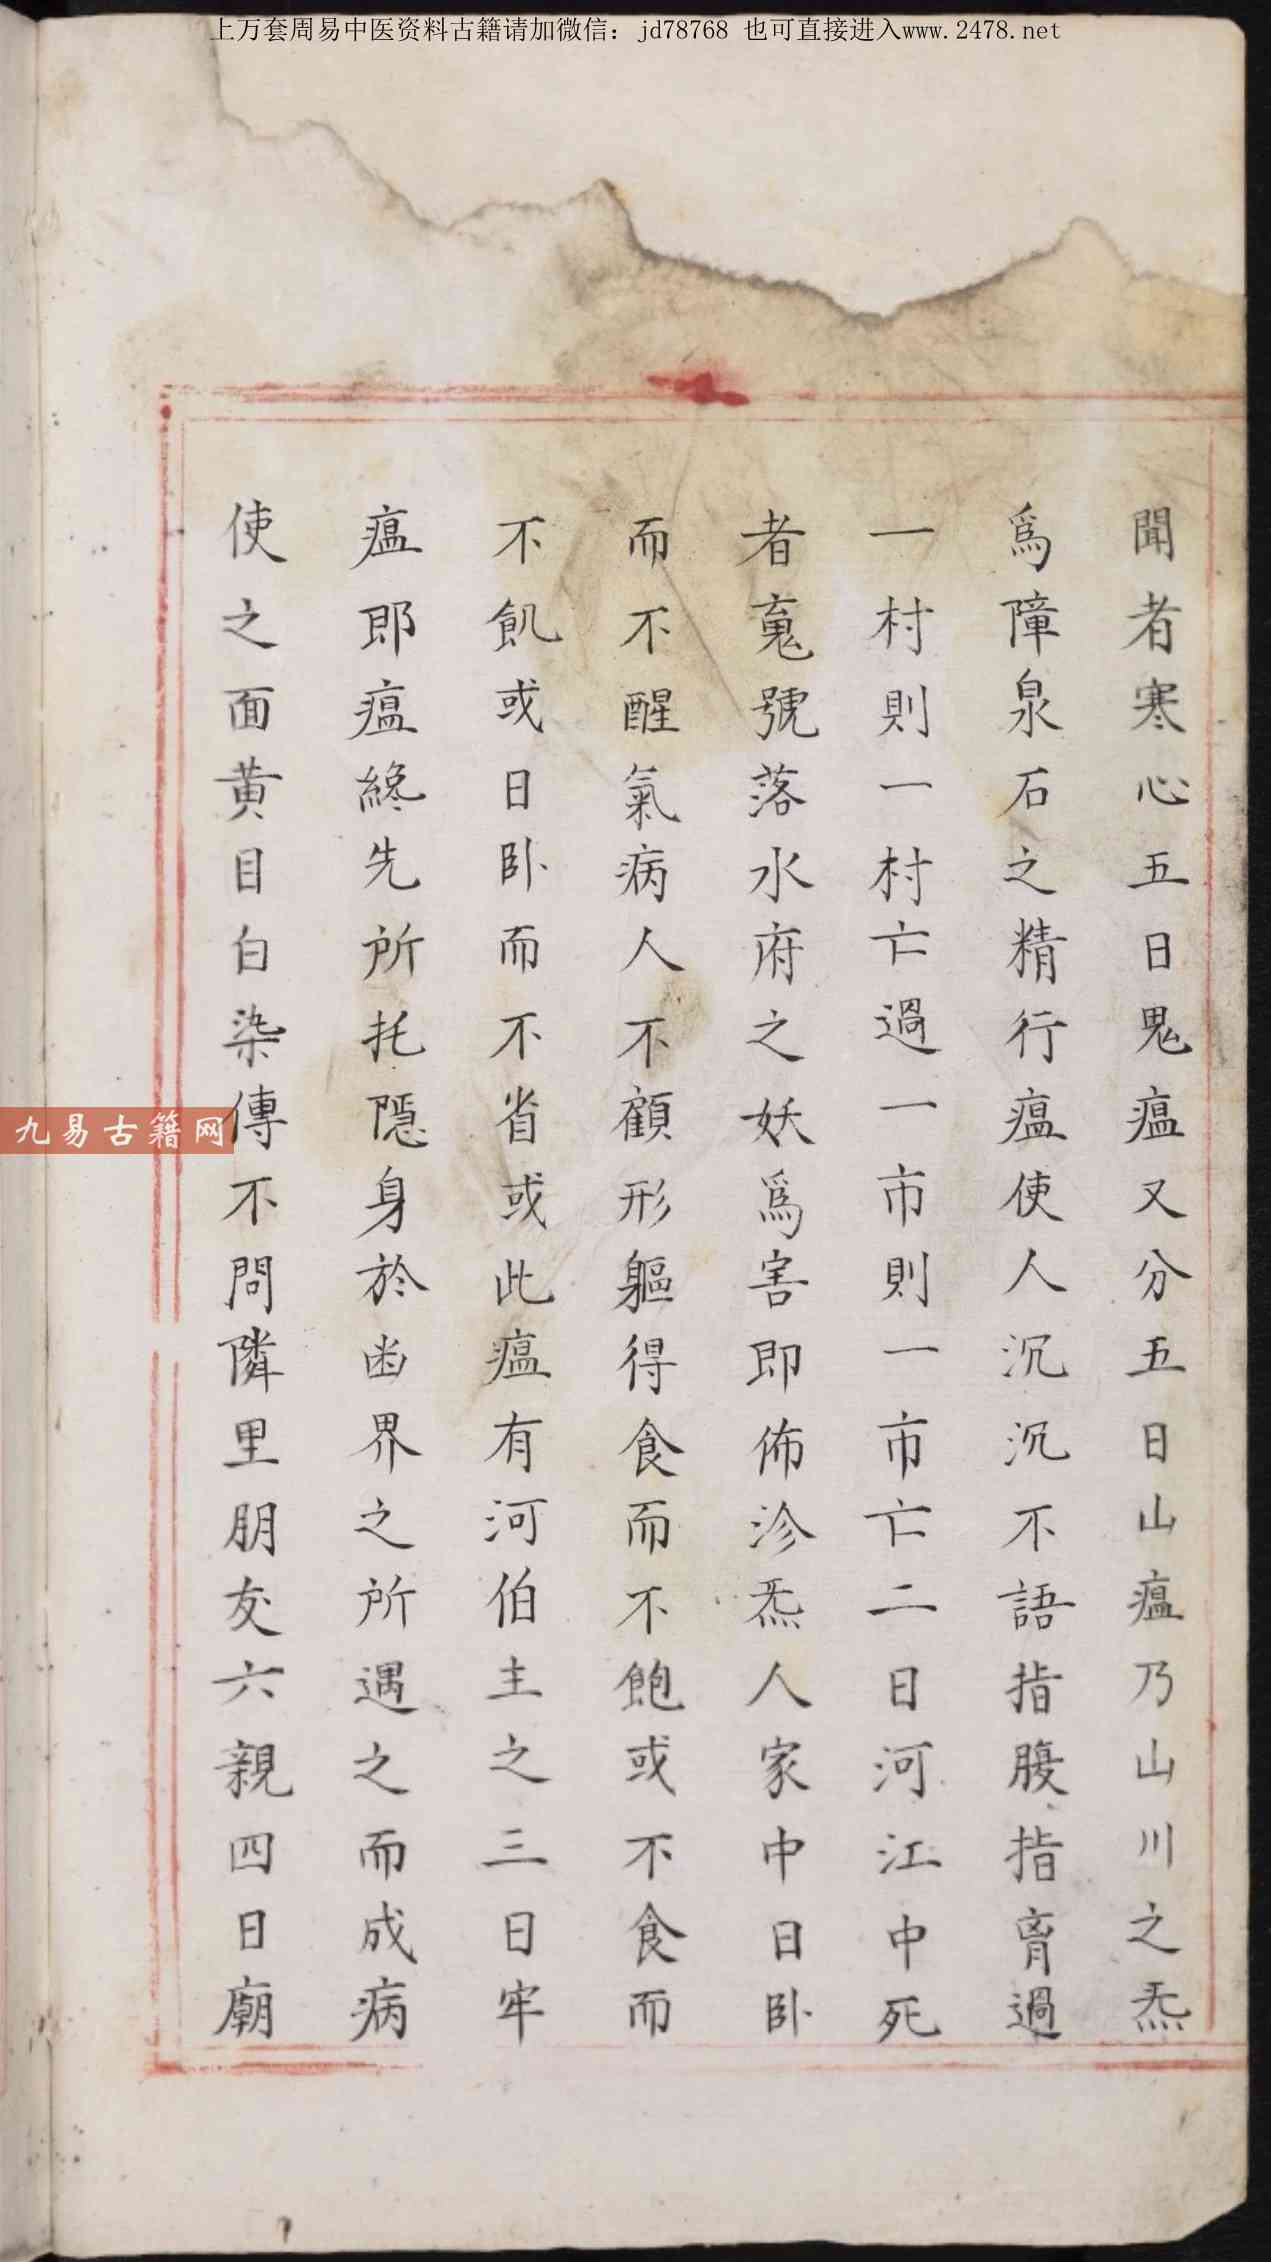 上万套周易中医资料古籍请加微信：jd78768 也可直接进入www.2478.net
聞者寒心五曰鬼瘟又分五日山瘟乃山川之炁
爲障泉石之精行瘟使人沉沉不語指腹指育過
一村則一村亡過一市則一市亡二曰河江中死
者鬼號落水府之妖爲害即佈沴炁人家中日卧
而不醒氣病人不顧形軀得食而不飽或不食而
不飢或日卧而不省或此瘟有河伯主之三曰牢
瘟郎瘟終先所托隱身於幽界之所遇之而成病
使之面黄目白染傳不問隣里朋友六親四曰廟
九易古籍网